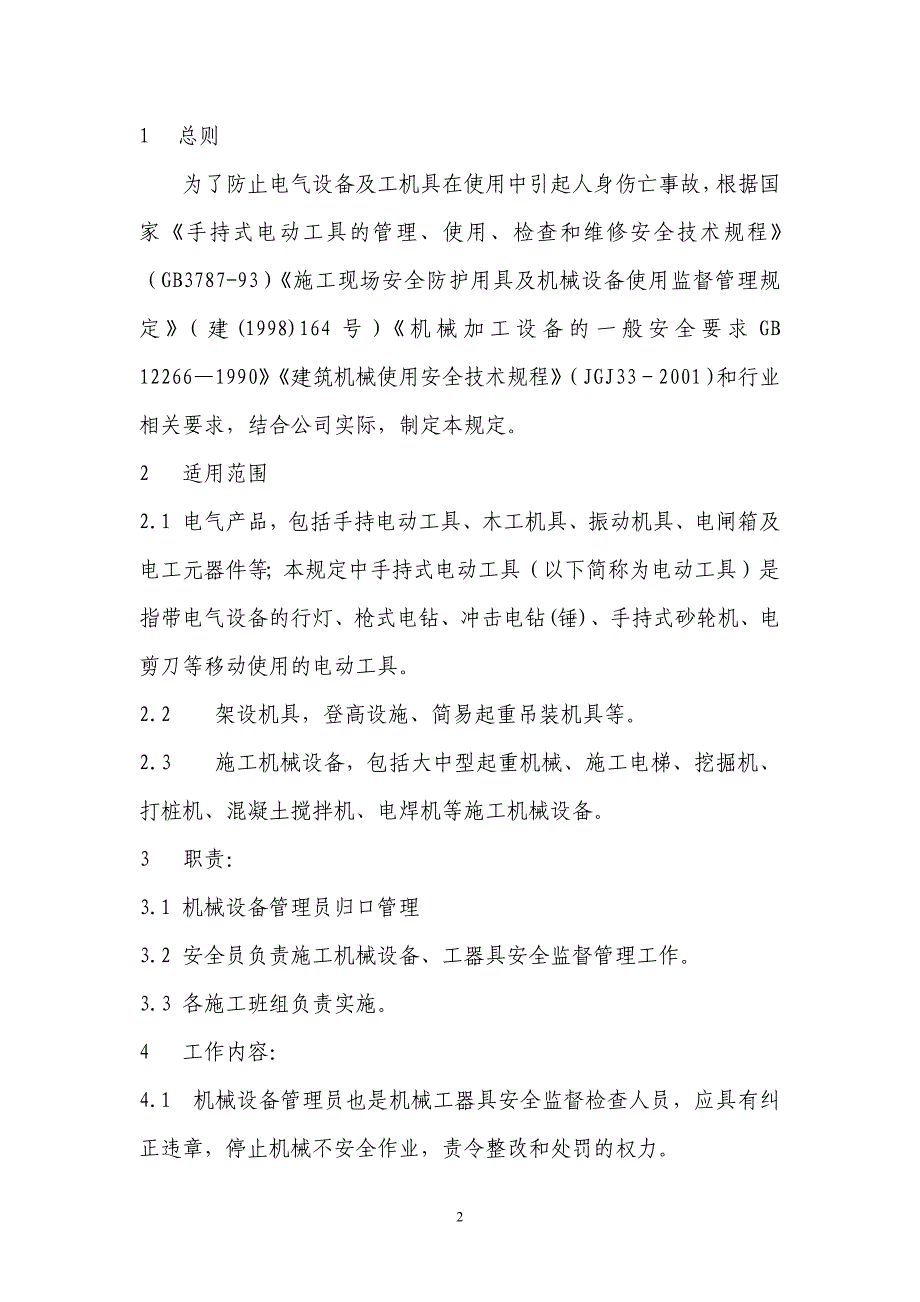 1 总则
为了防止电气设备及工机具在使用中引起人身伤亡事故，根据国
家《手持式电动工具的管理、使用、检查和维修安全技术规程》
（GB3787-93）《施工现场安全防护用具及机械设备使用监督管理规
定》（建(1998)164 号）《机械加工设备的一般安全要求 GB
12266—1990》《建筑机械使用安全技术规程》（JGJ33－2001）和行业
相关要求，结合公司实际，制定本规定。
2 适用范围
2.1 电气产品，包括手持电动工具、木工机具、振动机具、电闸箱及
电工元器件等；本规定中手持式电动工具（以下简称为电动工具）是
指带电气设备的行灯、枪式电钻、冲击电钻(锤)、手持式砂轮机、电
剪刀等移动使用的电动工具。
2.2 架设机具，登高设施、简易起重吊装机具等。
2.3 施工机械设备，包括大中型起重机械、施工电梯、挖掘机、
打桩机、混凝土搅拌机、电焊机等施工机械设备。
3 职责：
3.1 机械设备管理员归口管理
3.2 安全员负责施工机械设备、工器具安全监督管理工作。
3.3 各施工班组负责实施。
4 工作内容：
4.1 机械设备管理员也是机械工器具安全监督检查人员，应具有纠
正违章，停止机械不安全作业，责令整改和处罚的权力。
2